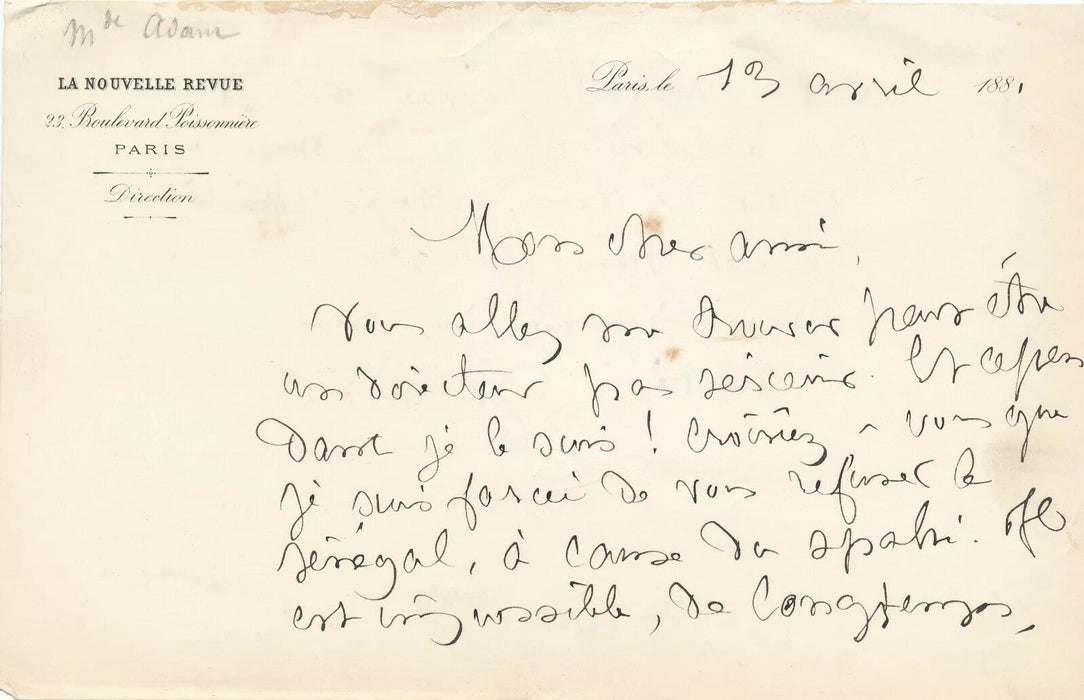 Mde Adam
LA NOUVELLE REVUE
23, Boulevard Poissonnière
PARIS
Direction
Paris, le 13 avril 1881
Mon cher ami,
vous allez me trouver peut être
un directeur pas sérieux. Et cepen
dant je le suis ! croiriez-vous que
je suis forcée de vous refuser le
sénégal, à cause du spahi. Il
est impossible, de longtemps,